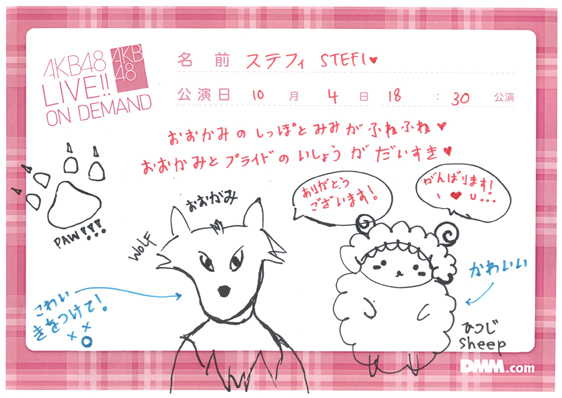 AKB48
LIVE!!
ON DEMAND
AKB
48
名前 ステフィ STEFI♥
公演日 10月4日 18:30 公演
おおかみのしっぽとみみがふわふわ♥
おおかみとプライドのいしょうがだいすき♥
PAW!!!
WOLF
おおかみ
ありがとう
ございます!
がんばります!
こわい
きをつけて!
××
かわいい
ひつじ
sheep
DMM.com